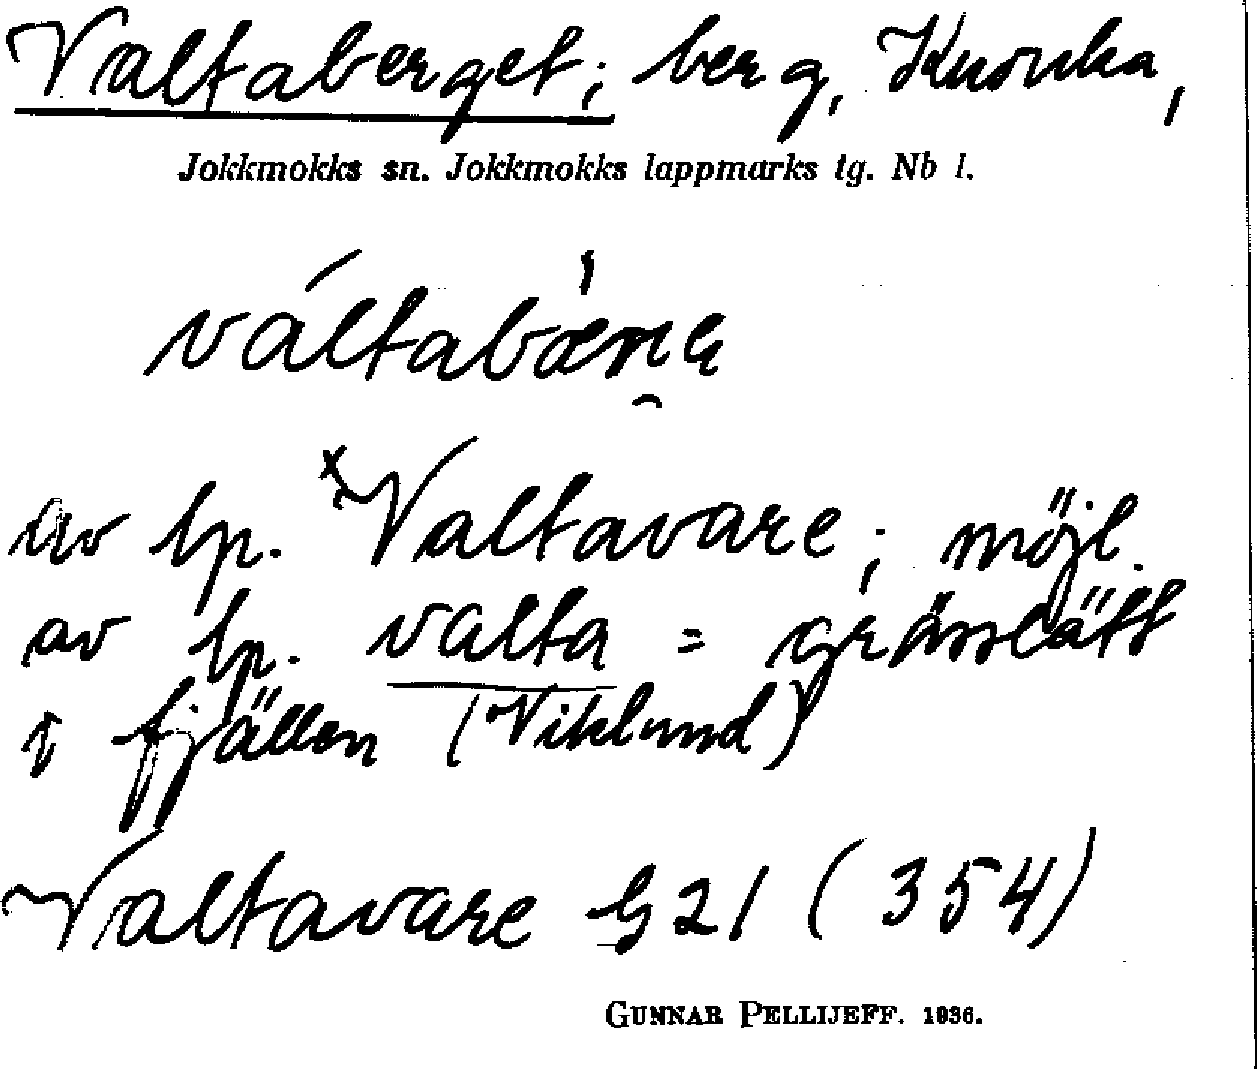 Valtaberget; berg, Knorka,
Jokkmokks sn. Jokkmokks lappmarks tg. Nb l.
váltabær̯ɢ
av lp. ˣValtavare; möjl.
av lp. valta = grässlätt
i fjällen (Wiklund)
Valtavare G 21 (354)
GUNNAR PELLIJEFF. 1936.